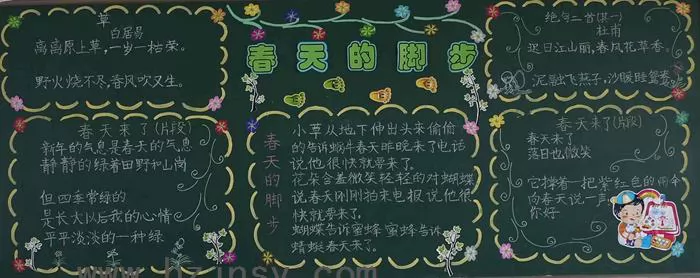 草
白居易
离离原上草,一岁一枯荣。
野火烧不尽,春风吹又生。
春天来了(片段)
新年的气息是春天的气息
静静的绿着田野和山岗
但四季常绿的
是长大以后我的心情
平平淡淡的一种绿
春天的脚步
春天的脚步
小草从地下伸出头来偷偷
的告诉蜗牛春天昨晚来了电话
说他很快就要来了
花朵含羞微笑轻轻的对蝴蝶
说春天刚刚拍来电报说他很
快就要来了
蝴蝶告诉蜜蜂 蜜蜂告诉
蜻蜓春天来了。
绝句二首(其一)
杜甫
迟日江山丽,春风花草香。
泥融飞燕子,沙暖睡鸳鸯。
春天来了(片段)
春天来了
落日也微笑
它撑着一把紫红色的雨伞
向春天说一声
你好